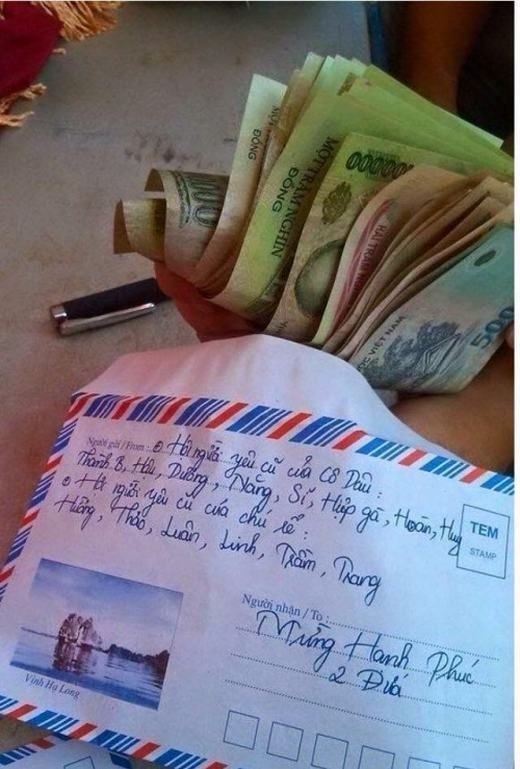 ĐỒNG
MỘT TRĂM NGHÌN
ĐỒNG
100000
HAI TRĂM
VIỆT NAM
500
Người gửi / From: Hội người yêu cũ của Cô Dâu:
Thành B, Hậu, Dương, Năng, Sĩ, Hiệp gà, Hoàn, Huy
Hội người yêu cũ của chú rể:
Hường, Thảo, Luân, Linh, Trầm, Trang
TEM
STAMP
Người nhận / To:
Mừng Hạnh Phúc
2 Đứa
Vịnh Hạ Long